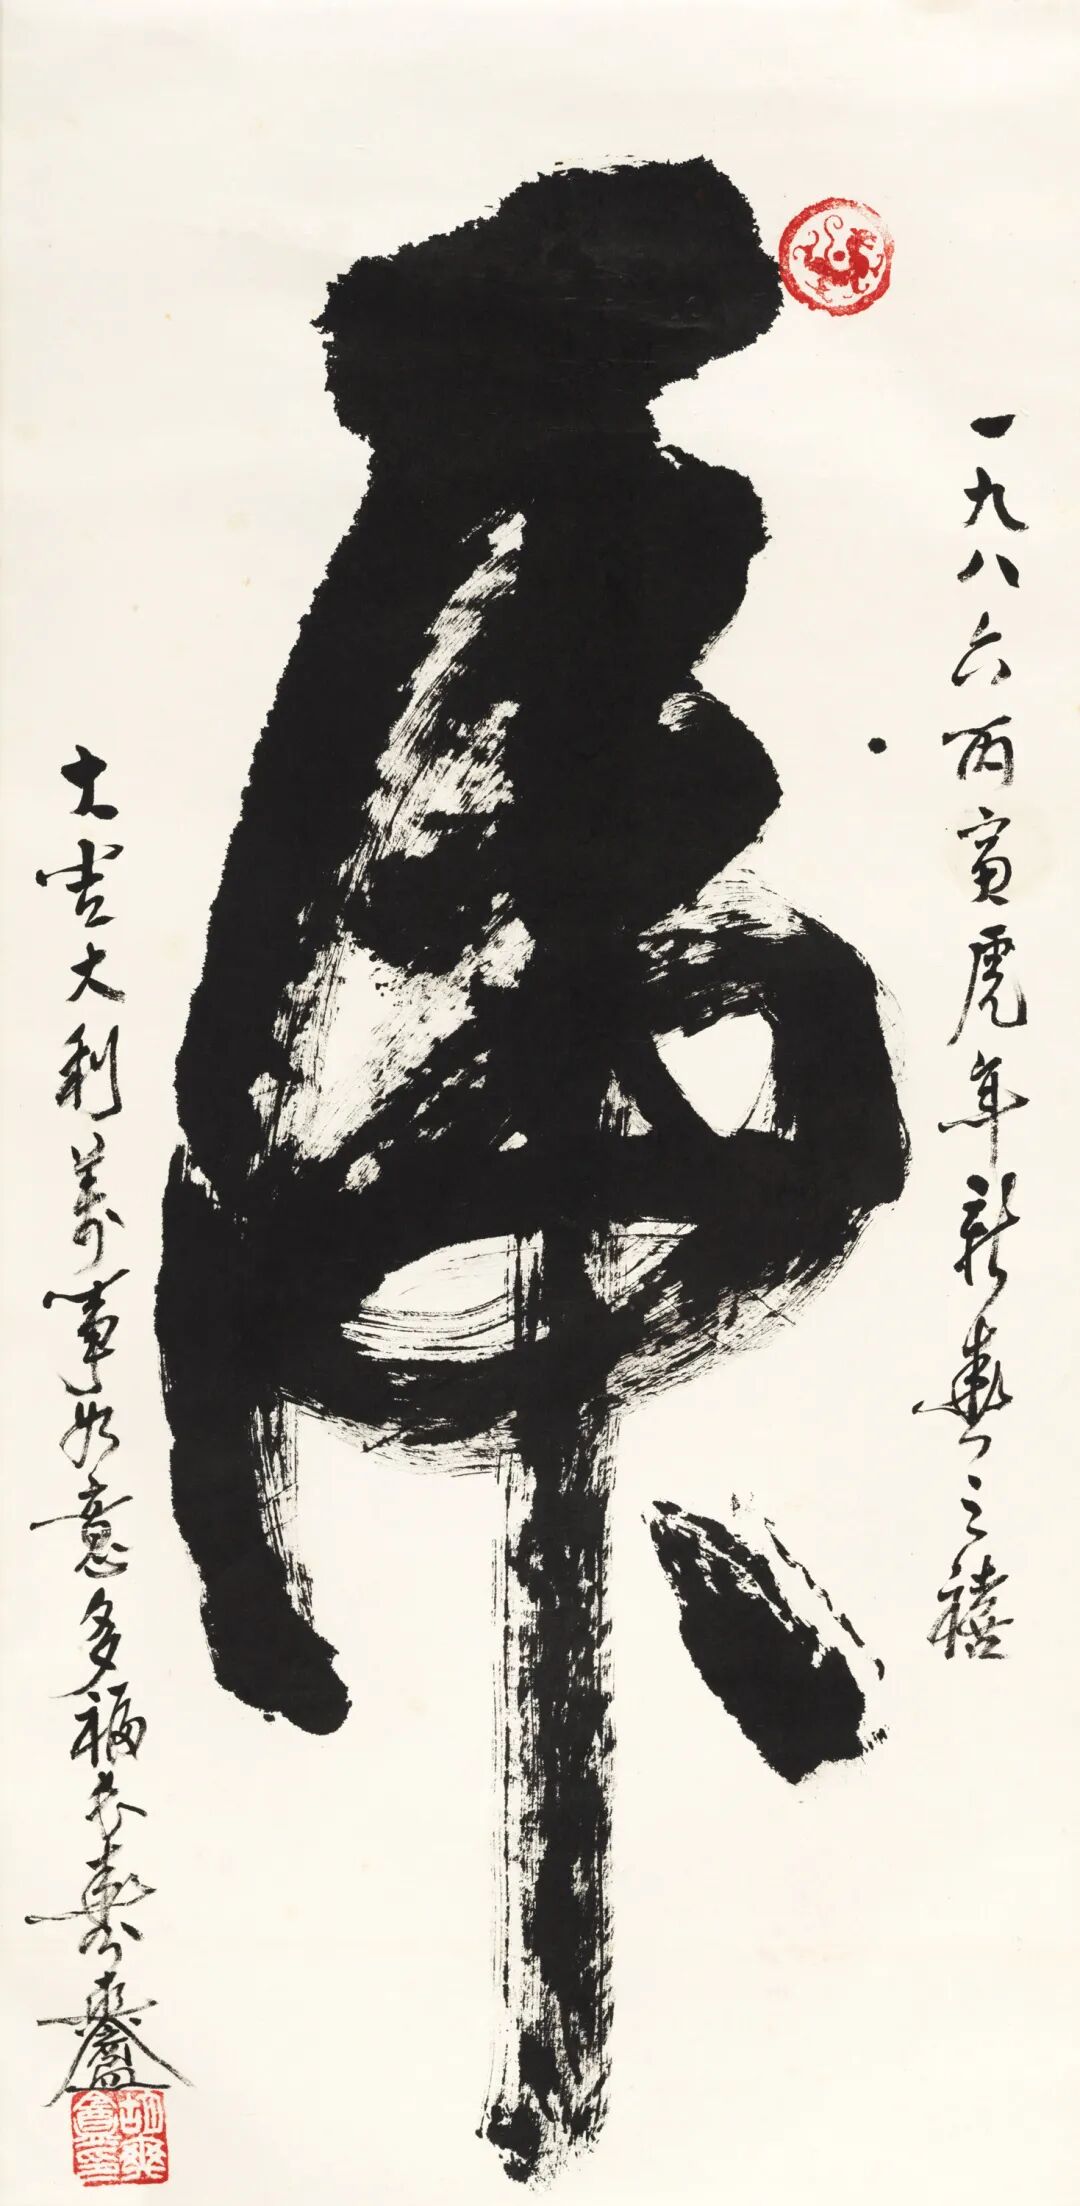 虎
一九八六丙寅虎年新春之禧
大吉大利萬事如意多福長壽爽盦
胡爽盦印